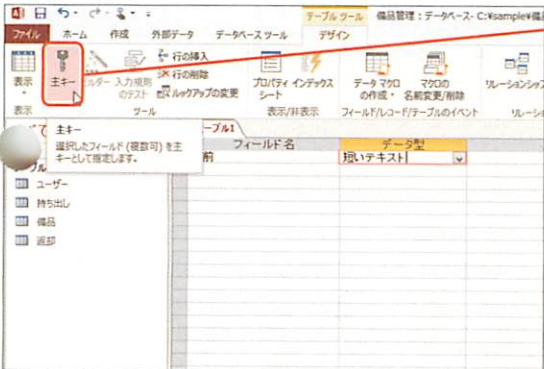 テーブル ツール
備品管理 : データベース- C:¥sample¥備品
ファイル ホーム 作成 外部データ データベース ツール デザイン
表示
主キー
ビルダー
入力規則のテスト
行の挿入
行の削除
ルックアップの変更
プロパティシート
インデックス
データ マクロの作成
マクロの名前変更/削除
リレーションシップ
表示 ツール 表示/非表示 フィールド/レコード/テーブルのイベント リレーシ
主キー
選択したフィールド (複数可) を主
キーとして指定します。
ーブル1
フィールド名 データ型
前 短いテキスト
ユーザー
持ち出し
備品
返却